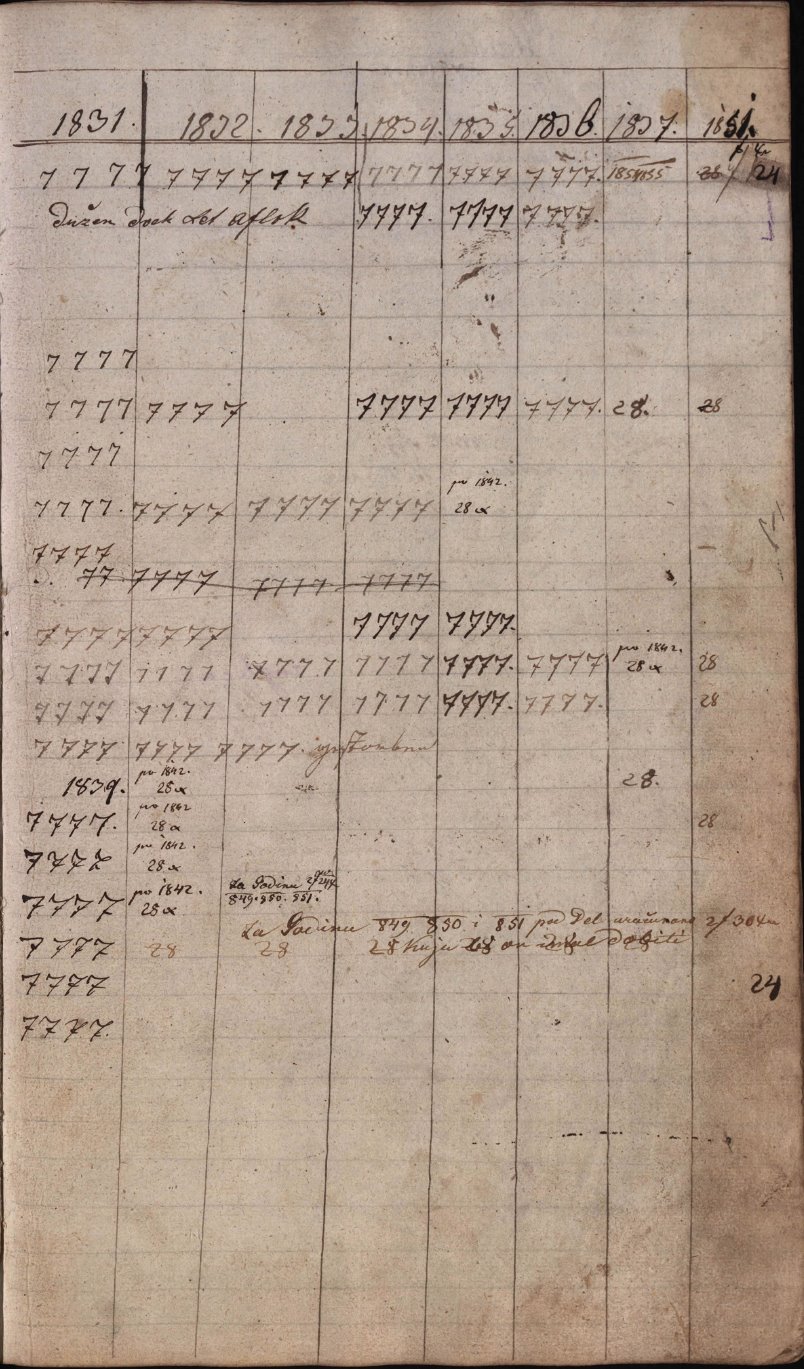 1831. 1832. 1833. 1834. 1835. 1836. 1837. 1851.
7 7 7 7 7777 7777 7777 7777 7777. 28 24
Dužen 7777. 7777 7777.
7 7 7 7
7777 7777 7777 7777 7777. 28. 28
7777
po 1842.
7777. 7777 7777 7777 28 α
7777
77 7777 7777 7777
7777 7777 7777 7777.
po 1842.
7777 7777 7777 7777 7777. 7777 28 α 28
7777 7777 7777 7777 7777. 7777. 28
7777 7777 7777.
po 1842.
1839. 28 α 28.
po 1842
7777. 28 α 28
po 1842.
7777 28 α
La Godinu
849. 850. 851.
po 1842.
7777 28 α
La Godinu 849 850 i 851 pod Del uračunano
7777 28 28 28 Kuju on imal dobiti
7777 24
7777.